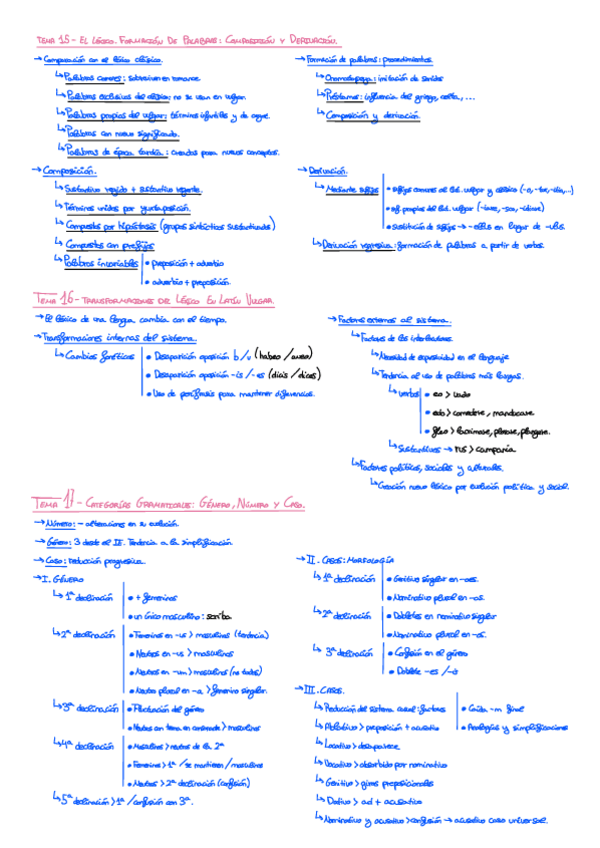 TEMA 15 - EL LÉXICO. FORMACIÓN DE PALABRAS: COMPOSICIÓN Y DERIVACIÓN.
→ Comparación con el léxico clásico.
↳ Palabras comunes: sobreviven en romance.
↳ Palabras exclusivas del clásico: no se usan en vulgar.
↳ Palabras propias del vulgar: términos infantiles y de argot.
↳ Palabras con nuevo significado.
↳ Palabras de época tardía: creadas para nuevos conceptos.
→ Composición.
↳ Sustantivo regido + sustantivo regente.
↳ Términos unidos por yuxtaposición.
↳ Compuestos por hipóstasis (grupos sintácticos sustantivados)
↳ Compuestos con prefijos
↳ Palabras invariables
• preposición + adverbio
• adverbio + preposición.
→ Formación de palabras: procedimientos
↳ Onomatopeya: imitación de sonidos
↳ Préstamos: influencia del griego, celta, ...
↳ Composición y derivación.
→ Derivación.
↳ Mediante sufijos
• sufijos comunes al lat. vulgar y clásico
• suf. propios del lat. vulgar
• Sustitución de sufijos → -ellus en lugar de -ulus.
↳ Derivación regresiva: formación de palabras a partir de verbos.
TEMA 16 - TRANSFORMACIONES DEL LÉXICO EN LATÍN VULGAR.
→ El léxico de una lengua cambia con el tiempo.
→ Transformaciones internas del sistema.
↳ Cambios fonéticos
• Desaparición oposición b/v (habeo/aveo)
• Desaparición oposición -is/-es (dicis/dices)
• Uso de perífrasis para mantener diferencias.
→ Factores externos al sistema.
↳ Factores de los interlocutores.
↳ Necesidad de expresividad en el lenguaje
↳ Tendencia al uso de palabras más largas.
↳ verbos
• eo > vado
• edo > comedere, manducare.
• fleo > lacrimare, plorare, plangere.
↳ Sustantivos → rus > campania
↳ Factores políticos, sociales y culturales.
↳ Creación nuevo léxico por evolución política y social.
TEMA 17 - CATEGORÍAS GRAMATICALES: GÉNERO, NÚMERO Y CASO.
→ Número: - alteraciones en su evolución.
→ Género: 3 desde el IE. Tendencia a la simplificación.
→ Caso: reducción progresiva.
→ I. GÉNERO
↳ 1ª declinación
• + femeninos
• un único masculino: scriba.
↳ 2ª declinación
• Femeninos en -us > masculinos (tendencia)
• Neutros en -us > masculinos
• Neutros en -um > masculinos (no todos)
• Neutro plural en -a > femenino singular.
↳ 3ª declinación
• Fluctuación del género
• Neutros con tema en consonante > masculinos
↳ 4ª declinación
• Masculinos > neutros de la 2ª
• Femeninos > 1ª / se mantienen / masculinos
• Neutros > 2ª declinación (confusión)
↳ 5ª declinación > 1ª / confusión con 3ª.
→ II. CASOS: MORFOLOGÍA
↳ 1ª declinación
• Genitivo singular en -aes.
• Nominativo plural en -as.
↳ 2ª declinación
• Dobletes en nominativo singular
• Nominativo plural en -os.
↳ 3ª declinación
• Confusión en el género
• Doblete -es /-is
→ III. CASOS.
↳ Reducción del sistema casual: factores
• Caída -m final
• Analogías y simplificaciones
↳ Ablativo > preposición + acusativo
↳ Locativo > desaparece.
↳ Vocativo > absorbido por nominativo
↳ Genitivo > giros preposicionales
↳ Dativo > ad + acusativo
↳ Nominativo y acusativo > confusión → acusativo caso universal.